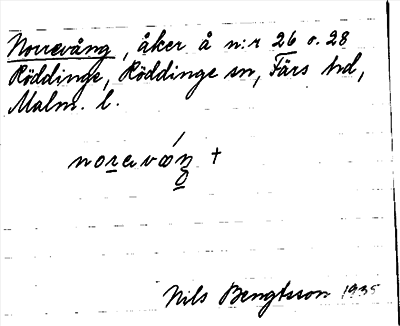 Norrevång, åker å n:r 26 o. 28
Röddinge, Röddinge sn, Färs hd,
Malm. l.
norevóŋ +
Nils Bengtsson 1935